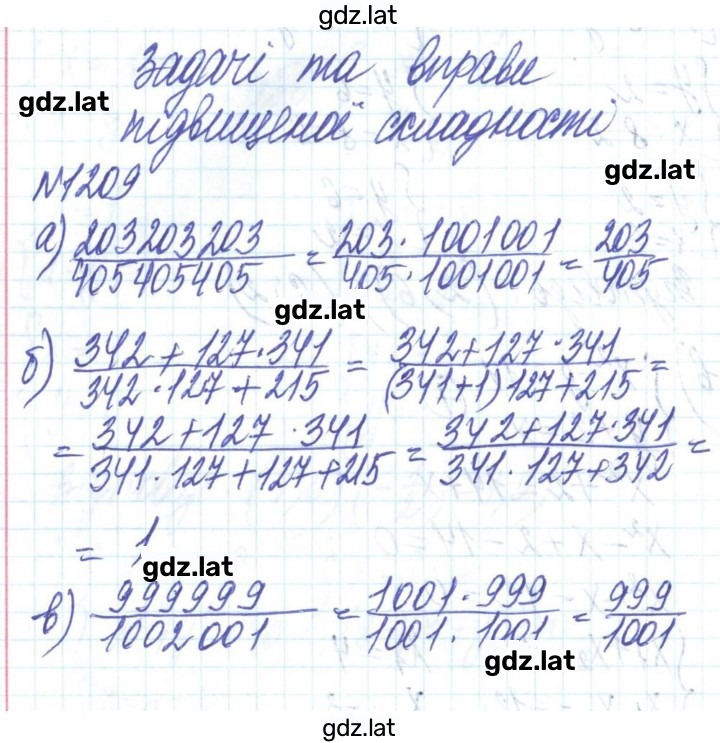 gdz.lat
Задачі та вправи
gdz.lat
підвищеної складності
gdz.lat
№1209
а) 203203203/405405405 = 203·1001001/405·1001001 = 203/405
gdz.lat
б) 342+127·341/342·127+215 = 342+127·341/(341+1)127+215 =
= 342+127·341/341·127+127+215 = 342+127·341/341·127+342 =
= 1
gdz.lat
в) 999999/1002001 = 1001·999/1001·1001 = 999/1001
gdz.lat
gdz.lat